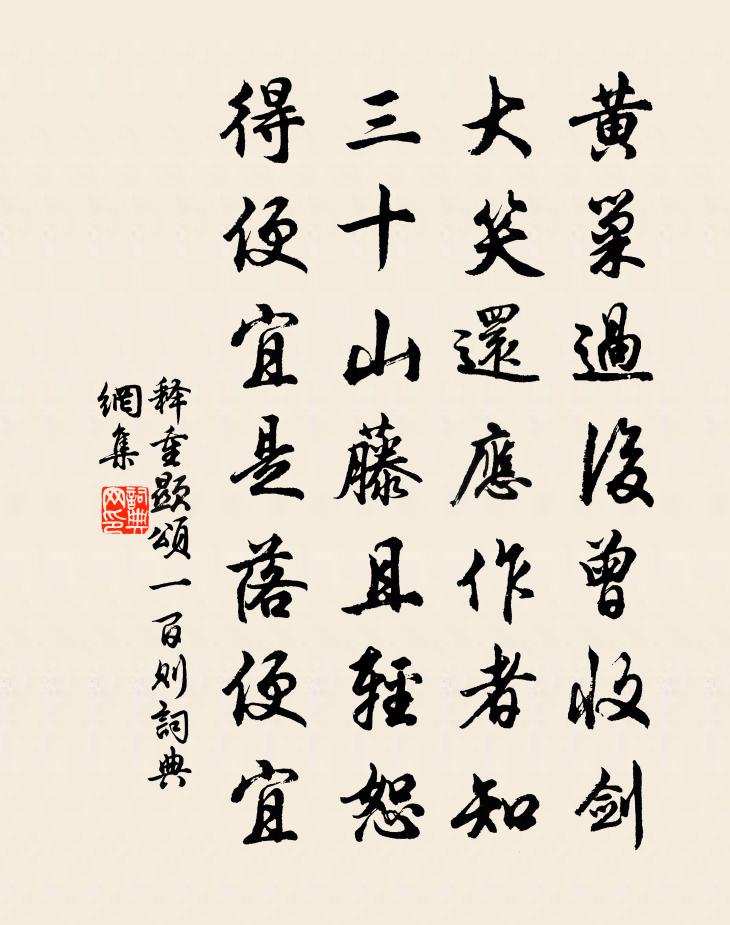 黄巢過後曾收劍
大笑還應作者知
三十山藤且輕恕
得便宜是落便宜
释重顯頌一百则詞典
網集
詞典
网印